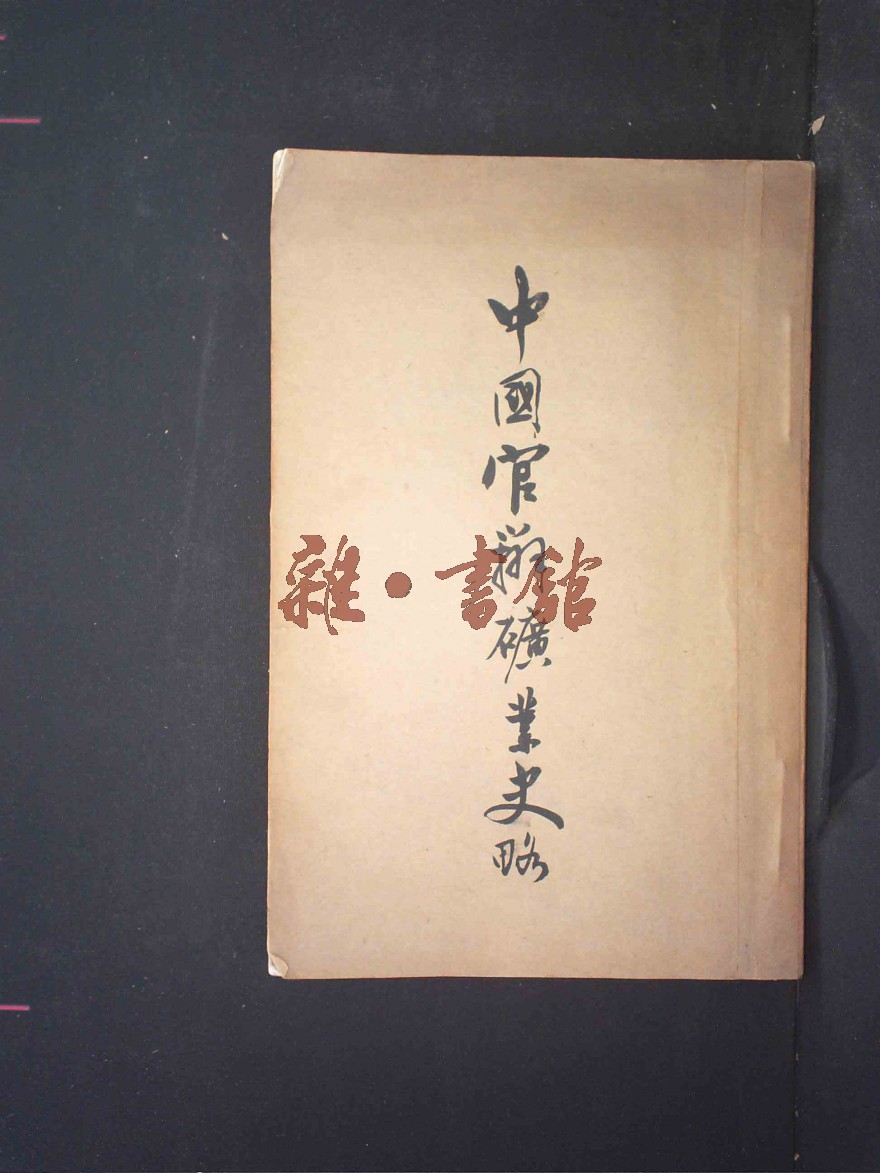 中國官辦礦業史略
雜·書館